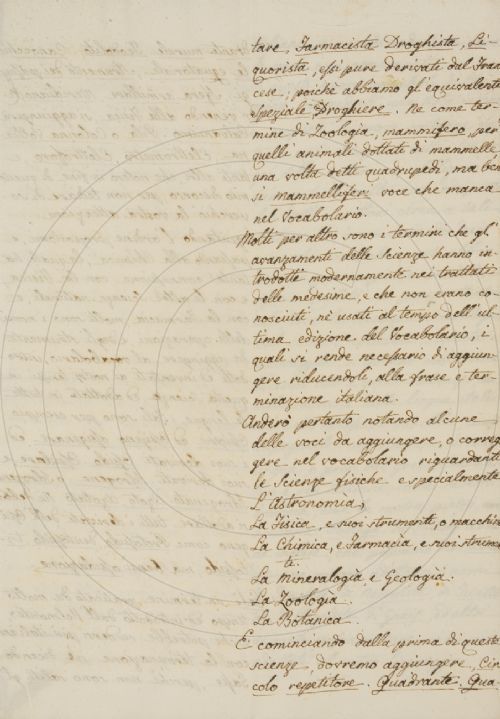 tare, Farmacista Droghista, Li-
quorista, essi pure derivati dal Fran
cese; poichè abbiamo gl'equivalente
speziale Droghiere. Ne come ter-
mine di Zoologia, mammifero, per
quelli animali dottati di mammelle
una volta detti quadrupedi, ma ben
si Mammelliferi voce che manca
nel Vocabolario.
Molti per altro sono i termini che gl'
avanzamenti delle scienze hanno in-
trodotti modernamente nei trattati
delle medesime, e che non erano co-
nosciuti, nè usati al tempo dell'ul-
tima edizione del Vocabolario, i
quali si rende necessario di aggiun-
gere riducendoli, alla frase e ter-
minazione italiana.
Anderò pertanto notando alcune
delle voci da aggiungere, o correg
gere nel vocabolario riguardanti
le Scienze fisiche e specialmente
L'Astronomia,
La Fisica, e suoi strumenti, o macchin
La Chimica, e Farmacia, e suoi strumen
ti.
La Mineralogia e Geologia.
La Zoologia.
La Botanica.
E cominciando dalla prima di queste
scienze dovremo aggiungere, Cir
colo repetitore. Quadrante. Qua-